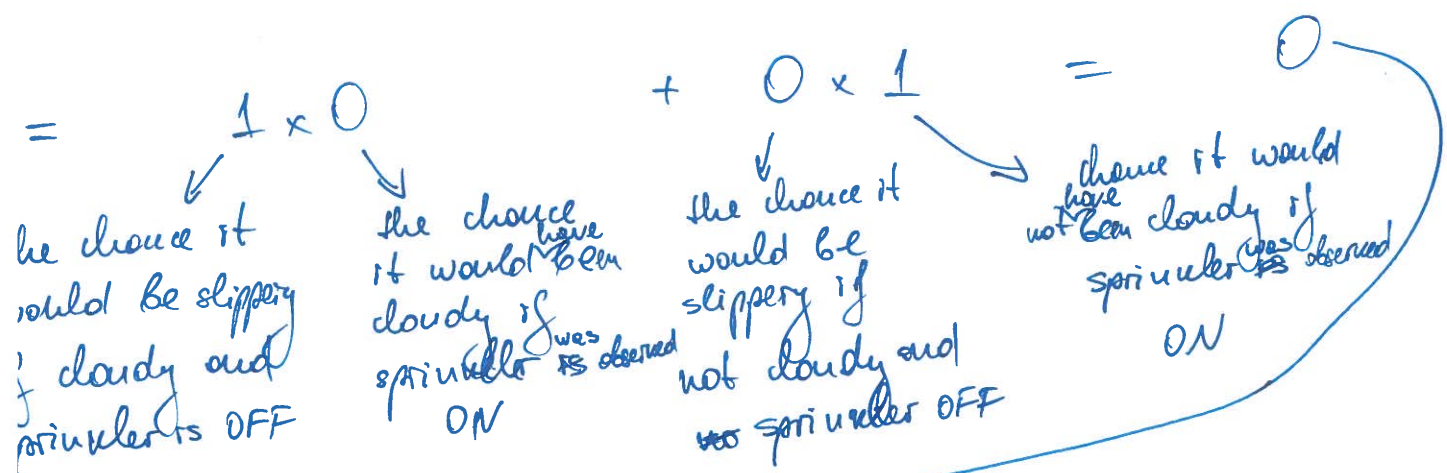 = 1 × 0 + 0 × 1 = 0
he chance it
ould be slippery
f cloudy and
prinkler is OFF
the chance
it would have been
cloudy if
sprinkler was observed
ON
the chance it
would be
slippery if
not cloudy and
sprinkler OFF
chance it would
not have been cloudy if
sprinkler was observed
ON